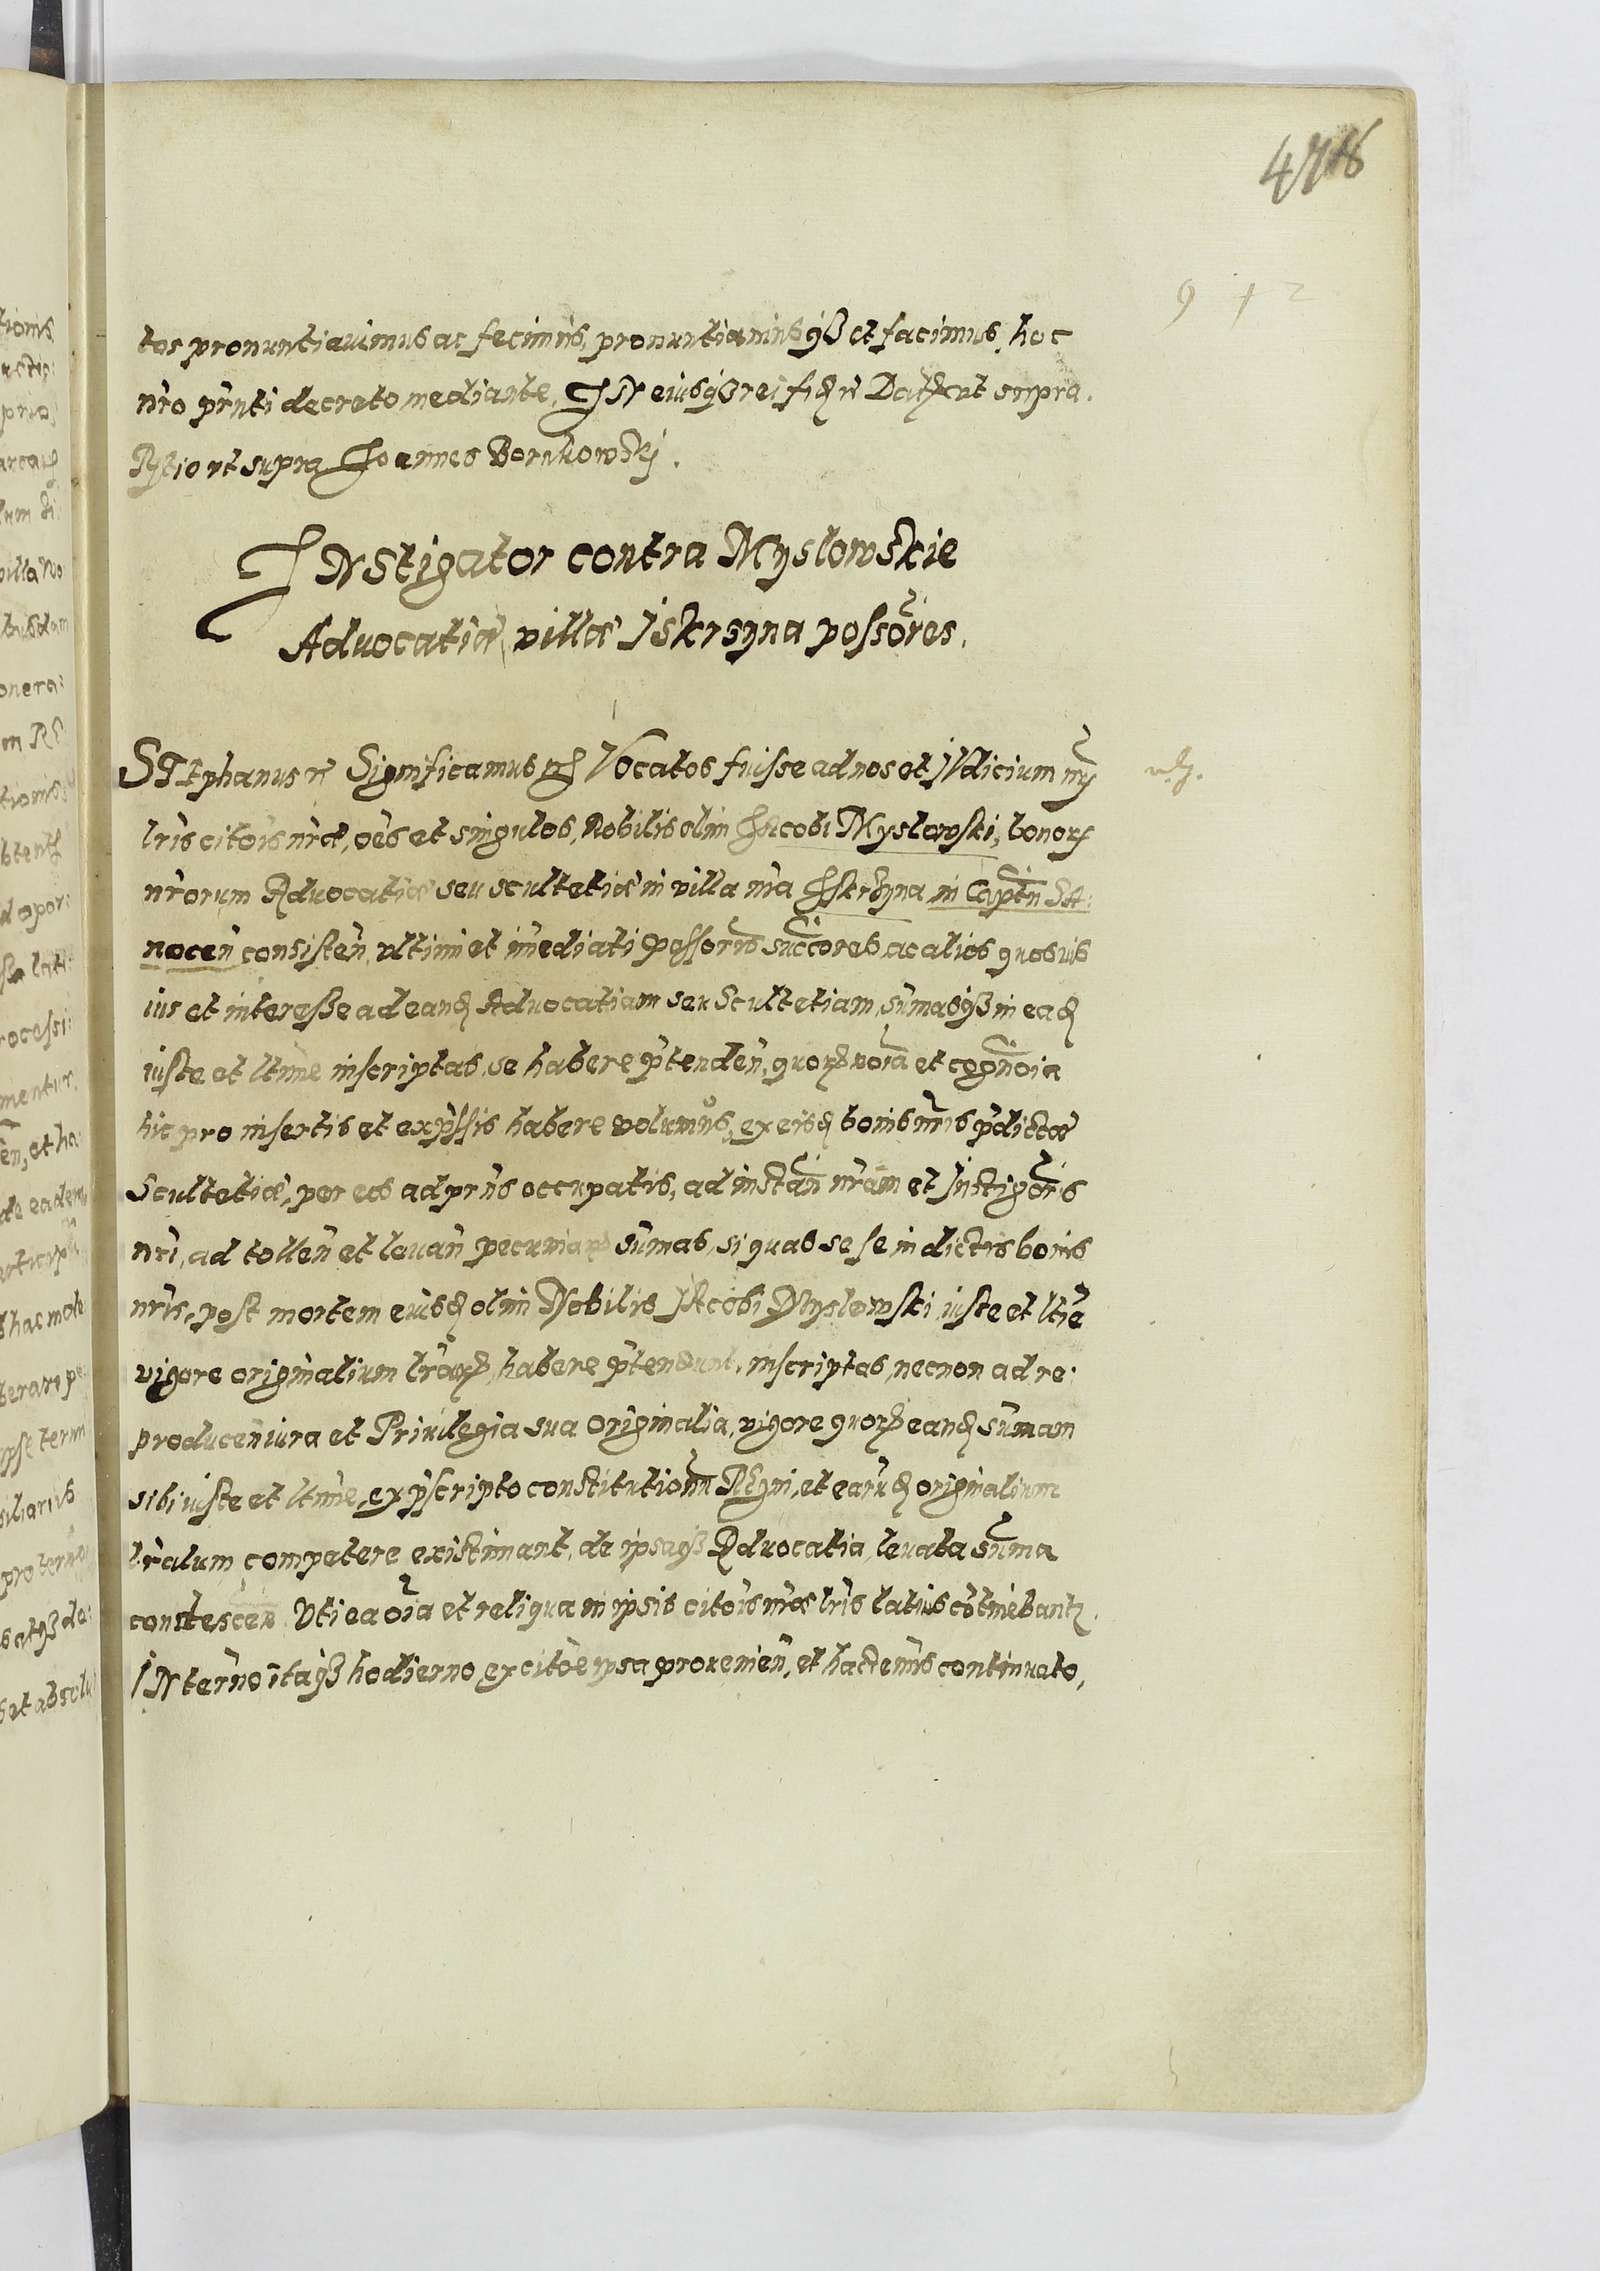 tos pronuntiavimus ac fecimus, pronuntiamusqȝ et facimus, hoc
nrõ prñti decreto mediante, IN eiusqȝ rei fidẽ Datũ ut supra.
ut supra Joannes Borukowskj.
INStigator contra Myslowskie
Advocatiæ villæ Jskrzyna possõres.
STEphanus Significamus Vocatos fuisse ad nos et JVdicium nrm̃
lrĩs citõis nrẽ, oẽs et singulos, Nobilis olim JAcobi Myslowski, bonorȝ
nrõrum Advocatiæ seu scultetiæ in villa nrã JSkrzyna in Captñ SA:
nocen̄ consisten̄, ultimi et im̃ediati possoris succ̃ores, ac alios quosuis
ius et interesse ad eandȝ Advocatiam seu Scultetiam, sum̃asqȝ in eadȝ
iuste et ltim̃e inscriptas, se habere p̃tenden̄, quorȝ noĩa et cogno̅ia
hic pro insertis et exp̃ssis habere volumus, ex eisdȝ bonis nrĩs p̃dictæ
Scultetiæ, per eos ad prñs occupatis, ad instan̄ nrãm et Jnstigõris
nrĩ, ad tollen̄ et levan̄ pecuniarȝ sum̃as, si quas sese in dictis bonis
nrĩs, post mortem eiusdȝ olim Nobilis JAcobi Myslowski iuste et ltim̃e
vigore originalium lrãrȝ, habere p̃tendunt, inscriptas, necnon ad re:
producen̄ iura et Privilegia sua originalia, vigore quorȝ eandȝ sum̃am
sibi iuste et ltim̃e, ex p̃scripto constitutionũ REgni, et earudȝ originalium
lrãlum competere existimant, de ipsaqȝ Advocatia, levata sum̃a
condescen̄ Vti ea oĩa et reliqua in ipsis citõis nræ lrĩs latius cõtinebantȝ.
IN ter̃no itaqȝ hodierno, ex citõe ipsa provenien̄, et hactenus continuato,